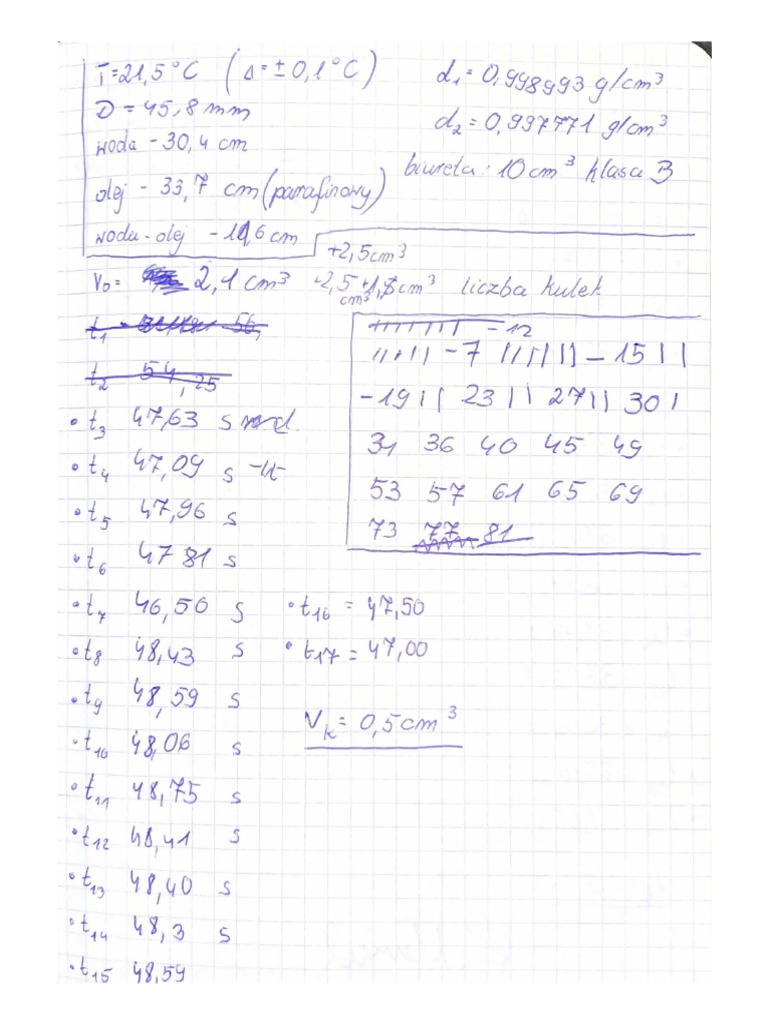 T=21,5°C (Δ=±0,1°C)
D=45,8mm
woda - 30,4 cm
olej - 33,7 cm (parafinowy)
woda-olej - 11,6 cm
d₁=0,998993 g/cm³
d₂=0,997771 g/cm³
biureta: 10cm³ klasa B
+2,5cm³
V₀= 2,1cm³ +2,5cm³ +1,8cm³ liczba kulek
t₁
t₂ 54,25
• t₃ 47,63 s
• t₄ 47,09 s
• t₅ 47,96 s
• t₆ 47 81 s
• t₇ 46,50 s
• t₈ 48,43 s
• t₉ 48,59 s
• t₁₀ 48,06 s
• t₁₁ 48,75 s
• t₁₂ 48,41 s
• t₁₃ 48,40 s
• t₁₄ 48,3 s
• t₁₅ 48,59
-12
-7 -15
-19 23 27 30
31 36 40 45 49
53 57 61 65 69
73 77 81
• t₁₆ = 47,50
• t₁₇ = 47,00
Vₖ= 0,5cm³